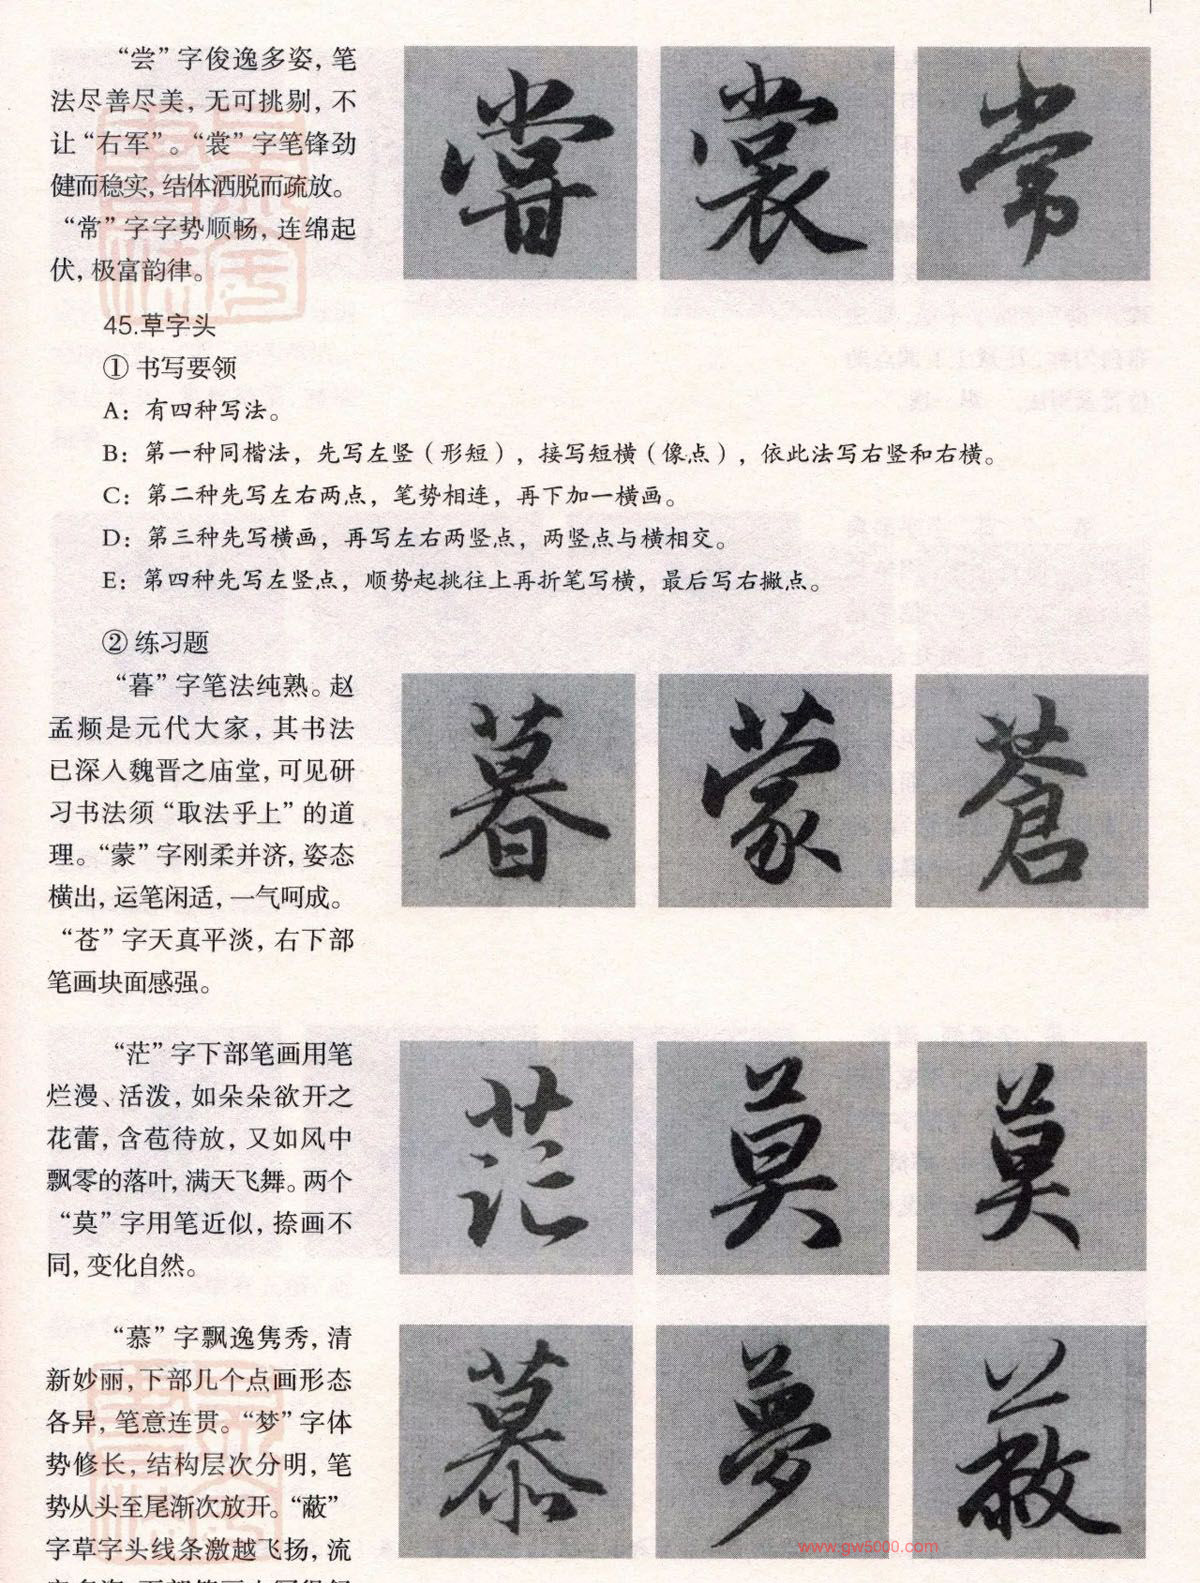 “尝”字俊逸多姿，笔
法尽善尽美，无可挑剔，不
让“右军”。“裳”字笔锋劲
健而稳实，结体洒脱而疏放。
“常”字字势顺畅，连绵起
伏，极富韵律。
嘗 裳 常
45.草字头
① 书写要领
A：有四种写法。
B：第一种同楷法，先写左竖（形短），接写短横（像点），依此法写右竖和右横。
C：第二种先写左右两点，笔势相连，再下加一横画。
D：第三种先写横画，再写左右两竖点，两竖点与横相交。
E：第四种先写左竖点，顺势起挑往上再折笔写横，最后写右撇点。
② 练习题
“暮”字笔法纯熟。赵
孟頫是元代大家，其书法
已深入魏晋之庙堂，可见研
习书法须“取法乎上”的道
理。“蒙”字刚柔并济，姿态
横出，运笔闲适，一气呵成。
“苍”字天真平淡，右下部
笔画块面感强。
暮 蒙 蒼
“茫”字下部笔画用笔
烂漫、活泼，如朵朵欲开之
花蕾，含苞待放，又如风中
飘零的落叶，满天飞舞。两个
“莫”字用笔近似，捺画不
同，变化自然。
茫 莫 莫
“慕”字飘逸隽秀，清
新妙丽，下部几个点画形态
各异，笔意连贯。“梦”字体
势修长，结构层次分明，笔
势从头至尾渐次放开。“蔽”
字草字头线条激越飞扬，流
慕 夢 蔽
www.gw5000.com